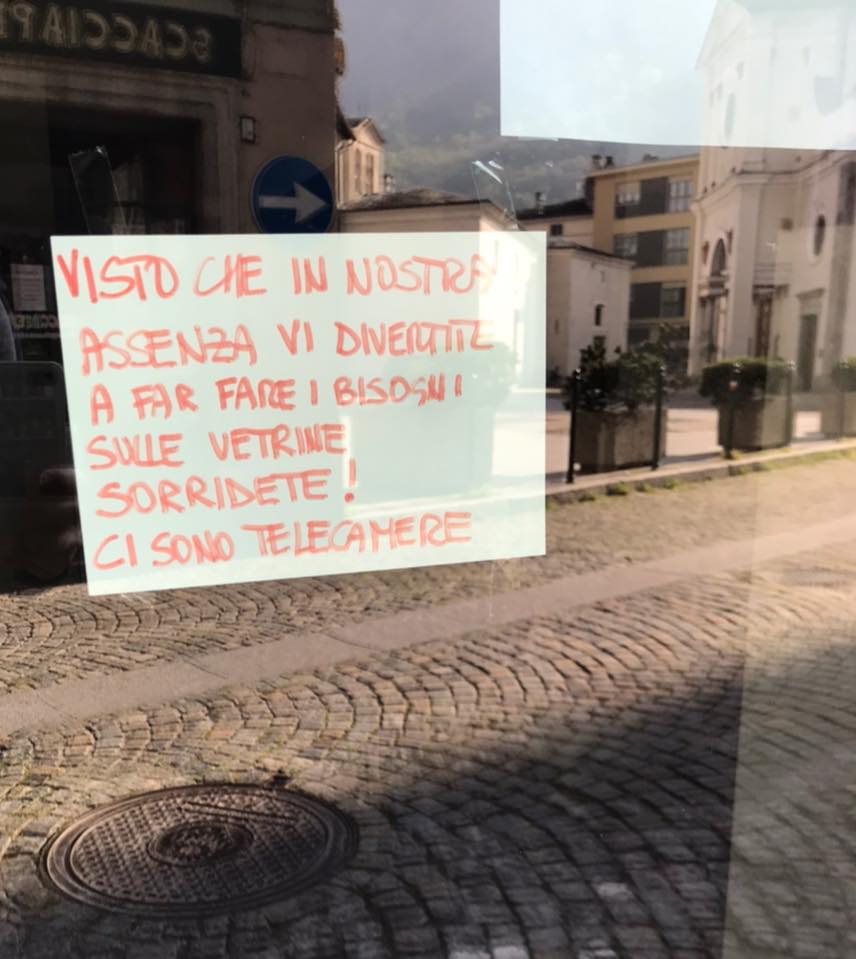 SCACCIAPE
VISTO CHE IN NOSTRA
ASSENZA VI DIVERTITE
A FAR FARE I BISOGNI
SULLE VETRINE
SORRIDETE!
CI SONO TELECAMERE